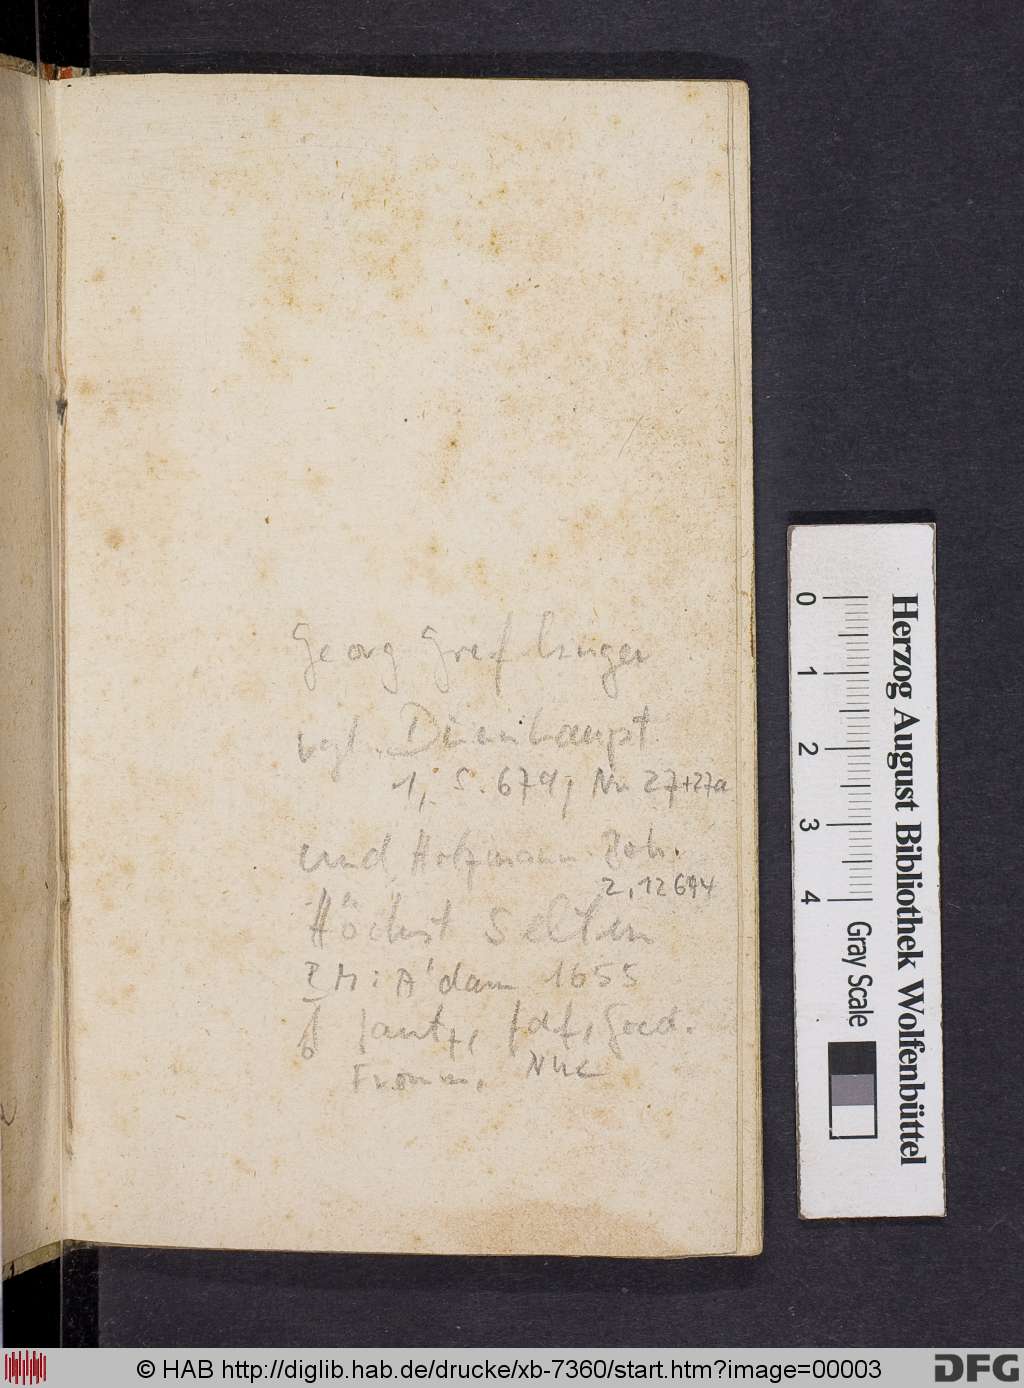 Georg Greflinger
vgl. Dünnhaupt
1, S. 679, Nr 27+27a
und Holzmann Boh.
2, 12694
Höchst selten
BM: A'dam 1655
Faut, fdf, Goed.
Fromm,
Herzog August Bibliothek Wolfenbüttel
0 1 2 3 4 Gray Scale
© HAB http://diglib.hab.de/drucke/xb-7360/start.htm?image=00003
DFG